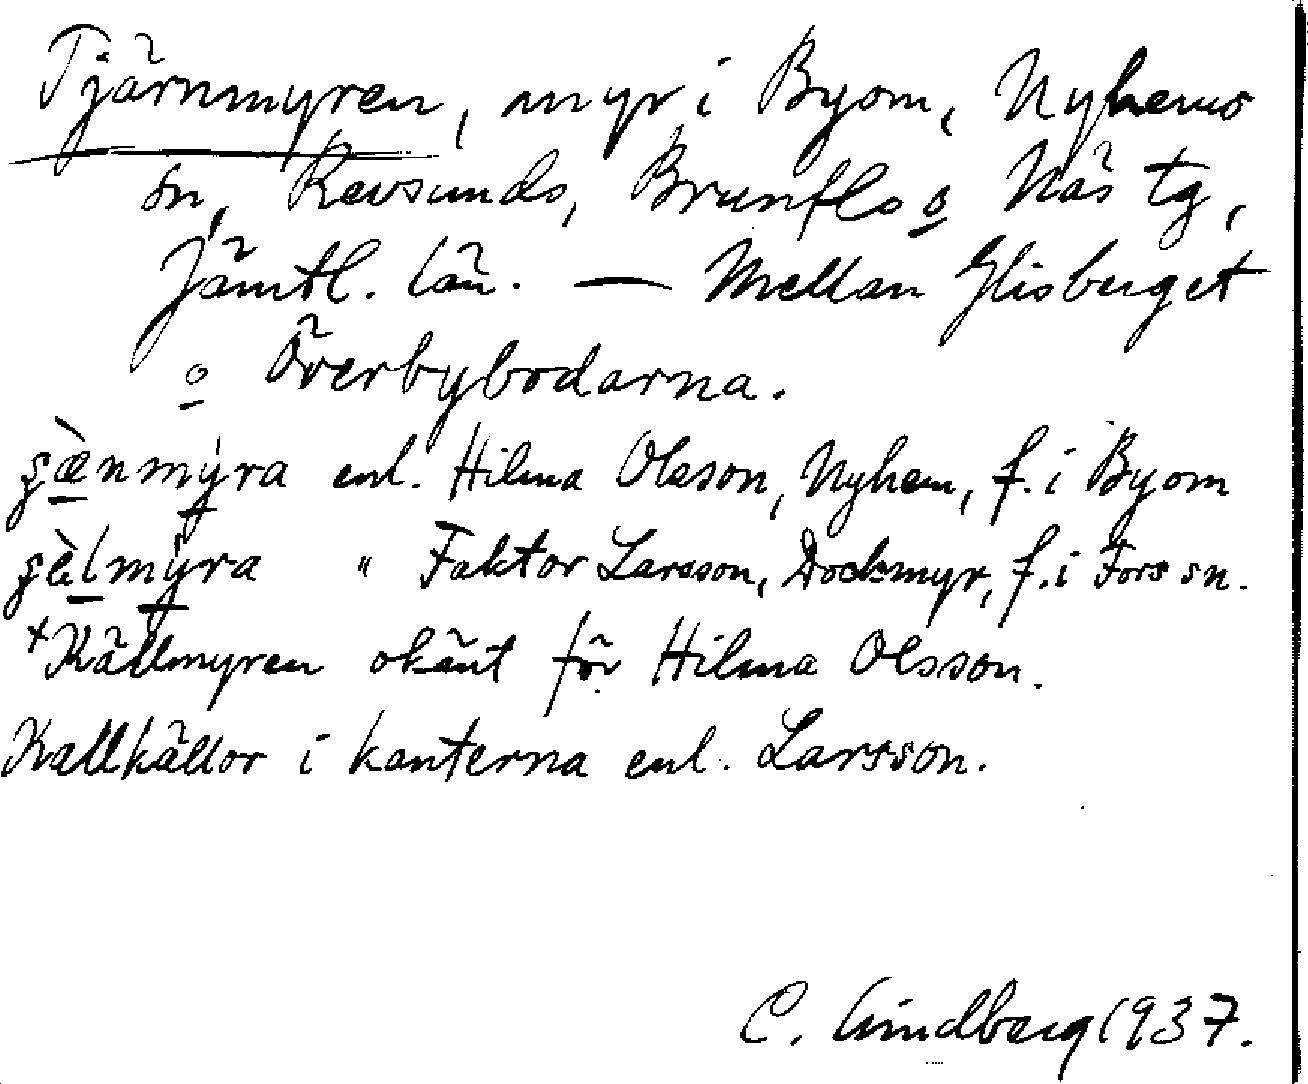 Tjärnmyren, myr i Byom, Nyhems
sn, Revsunds, Brunflo o Näs tg,
Jämtl. län. — Mellan Glisberget
o Överbybodarna.
enl. Hilma Olsson, Nyhem, f. i Byom
" Faktor Larsson, Dockmyr, f. i Fors sn.
Källmyren okänt för Hilma Olsson.
Kallkällor i kanterna enl. Larsson.
C. Lindberg 1937.